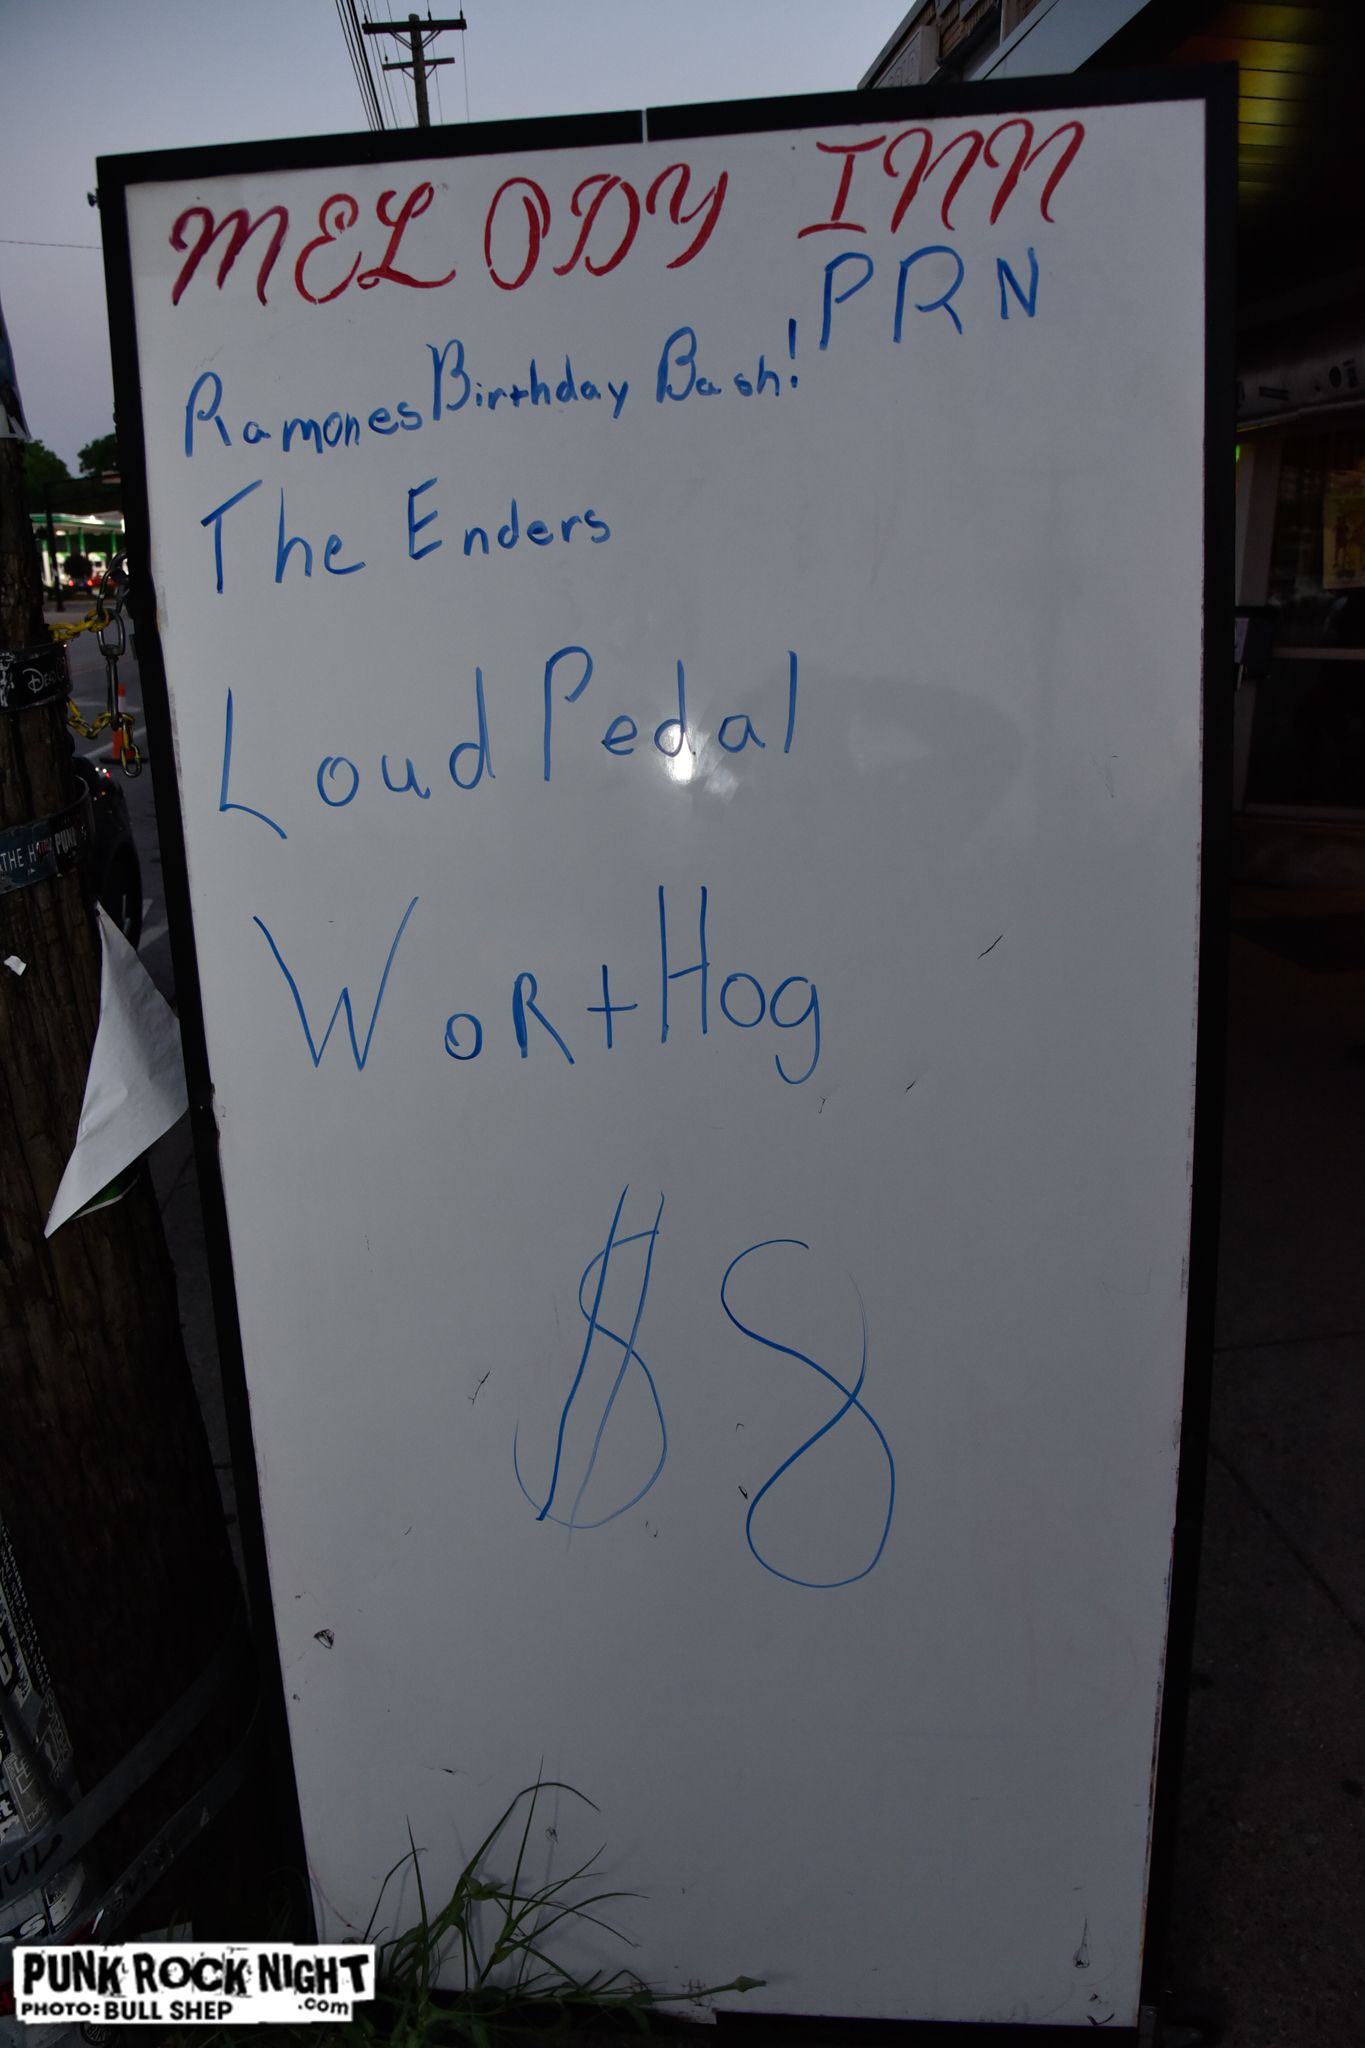 MELODY INN
PRN
Ramones Birthday Bash!
The Enders
Loud Pedal
WoRtHog
$8
PUNK ROCK NIGHT
.com
PHOTO: BULL SHEP